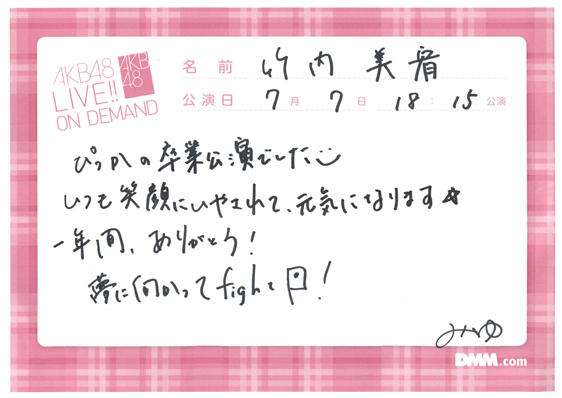 AKB48
LIVE!!
ON DEMAND
AKB
48
名前 竹内美宥
公演日 7月7日 18:15公演
ぴっかの卒業公演でした
いつも笑顔にいやされて、元気になります☆
一年間、ありがとう!
夢に向かってfight
みゆ
DMM.com